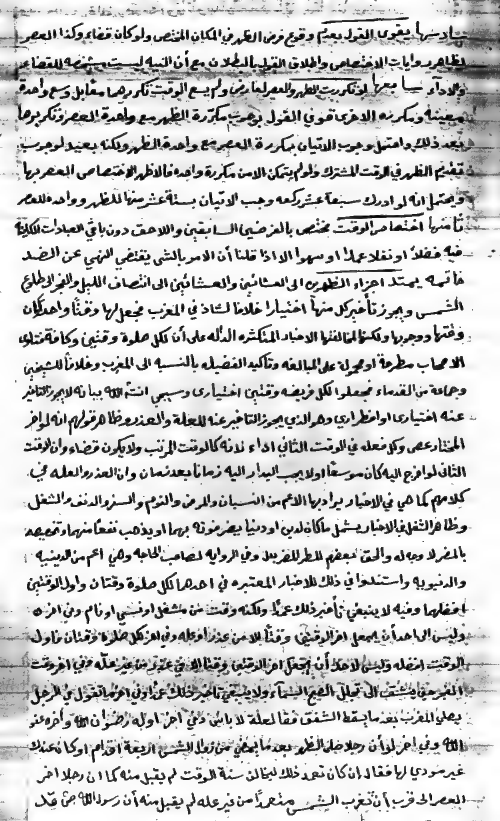 سادسها يقوى القول بعدم وقوع فرض الظهر في المكان المختص ولو كان قضاء وكذا العصر
لظاهر روايات الاختصاص واطلاق القول بالبطلان مع أن النية ليست مشخصة للقضاء
والاداء سابعها لو تكررت الظهر والعصر لعارض ولم يسع الوقت تكررهما مقابل وسع واحدة
معينة ومكررة الاخرى قوي القول بوجوب مكررة الظهر مع واحدة العصر ثم تكررها
بعد ذلك واحتمل وجوب الاتيان بمكررة العصر مع واحدة الظهر ولكنه بعيد لوجوب
تقديم الظهر في الوقت المشترك ولو لم يتمكن الا من مكررة واحدة فالاظهر الاختصاص العصر بها
ويحتمل انه لو ادرك سبعة عشر ركعة وجب الاتيان بستة عشر منها للظهر وواحدة للعصر
ثامنها اختصاص الوقت مختص بالفرضين السابقين واللاحق دون باقي العبادات
فيه فضلا او نفلا عمدا او سهوا الا اذا قلنا أن الامر بالشي يقتضي النهي عن الضد
خاتمه يمتد اجزاء الظهرين الى العشائين والعشائين الى انتصاف الليل والفجر الى طلوع
الشمس ويجوز تأخير كل منها اختيارا خلافا لشاذ في المغرب فجعل لها وقتا واحدا
وقتها ووجوبها ولكنها لمخالفتها الاخبار المتكثره الداله على أن لكل صلوة وقتين وكافة فتاوى
الاصحاب مطرحة او محمولة على المبالغه وتأكيد الفضيله بالنسبه الى المغرب وخلافا للشيخين
وجماعة من القدماء فجعلوا لكل فريضه وقتين اختياري وسيجي انشاء الله بيانه لا يجوز التاخير
عنه اختياري او اضطراري وهو الذي يجوز التاخير عنه للعلة والعذر وظاهر قولهم انه لو اخر
المختار عصى وكل فعله في الوقت الثاني اداء لانه كالوقت المرتب ولا يكون قضاء وان الوقت
الثاني لو اخرج اليه كان موسعا اولا يجب البدار اليه زمانا بعد زمان وان العذر والعله في
كلامهم كما هي في الاخبار يراد بها الاعم من النسيان والمرض والنوم والسفر والدنف والشغل
وظاهر الشغل في الاخبار يشمل ما كان لدين او دنيا
والدنيويه واستندوا في ذلك للاخبار المعتبره في احدها لكل صلوة وقتان واول الوقتين
افضلهما وفيه لا ينبغي تأخير ذلك عمدا ولكنه وقت من شغل او نسى او نام وفي اخره
وليس لاحد أن يجعل اخر الوقتين وقتا الا من عذر او عله وفي اخر لكل صلوة وقتان فاول
الوقت افضله وليس لاحد أن يجعل اخر الوقتين وقتا الا في عذر من غير عله وفي اخر وقت
الفجر حين ينشق الى تجلل الصبح السماء ولا ينبغي تأخير ذلك عمدا وفي اخر ما تقول في الرجل
يصلي المغرب بعد ما يسقط الشفق فقال لعلة لا باس وفي اخر اوله رضوان الله واخره عفو
الله وفي اخر لو أن رجلا صلى الظهر بعد ما يمضي من زوال الشمس اربعة اقدام او كان عندك
غير مودي لها فقال ان كان تعمد ذلك ليخالف سنة الوقت لم يقبل منه كما ان رجلا اخر
العصر الى قرب أن تغرب الشمس متعمدا من غير عله لم يقبل منه أن رسول الله ص قد